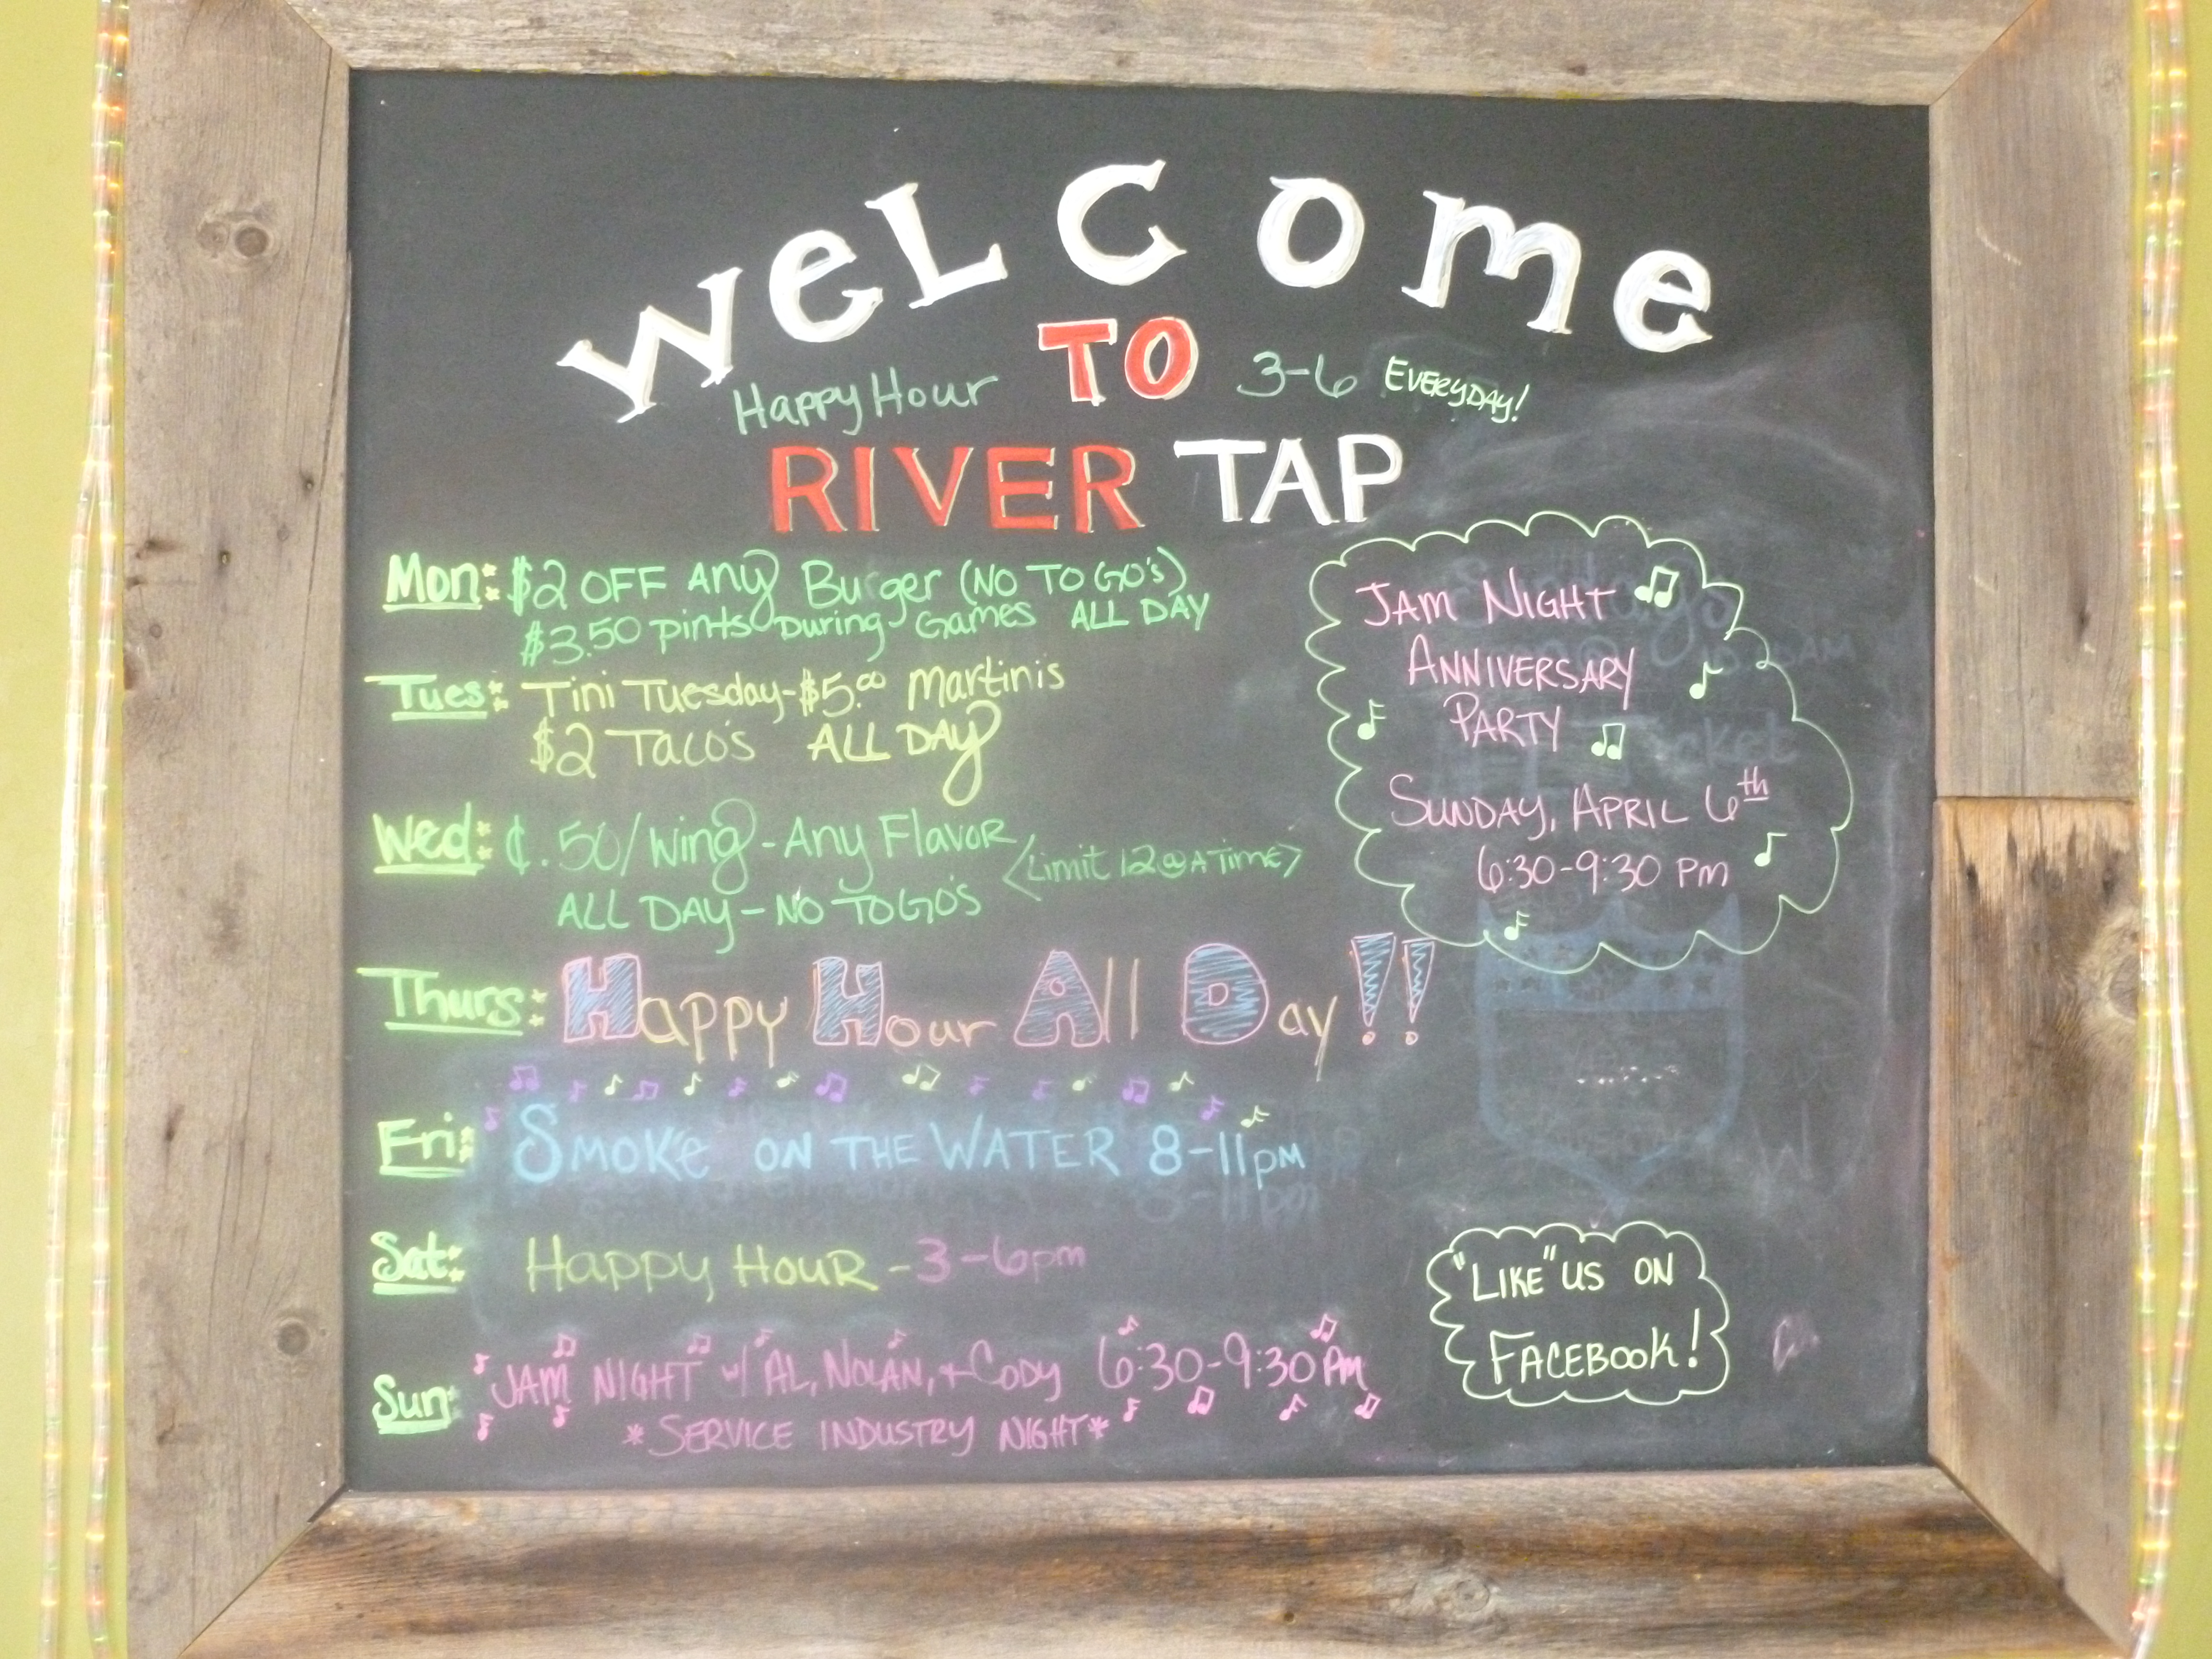 WeLcome
TO
Happy Hour 3-6 EVERYDAY!
RIVER TAP
Mon: $2 OFF ANy Burger (NO TO GO's)
$3.50 pints During Games ALL DAY
Tues: Tini Tuesday-$5.00 Martinis
$2 Taco's ALL DAY
Wed: ¢.50/Wing - Any Flavor <Limit 12@ATime>
ALL DAY - NO TO GO'S
Thurs: Happy Hour All Day!!
Fri: SMOKe ON THE WATER 8-11pm
Sat: Happy HOUR - 3-6pm
Sun: JAM NIGHT w/ AL, NOLAN, + CODY 6:30-9:30 PM
*SERVICE INDUSTRY NIGHT*
JAM NIGHT
ANNIVERSARY
PARTY
SUNDAY, APRIL 6th
6:30-9:30 PM
"LIKE" US ON
FACEBOOK!